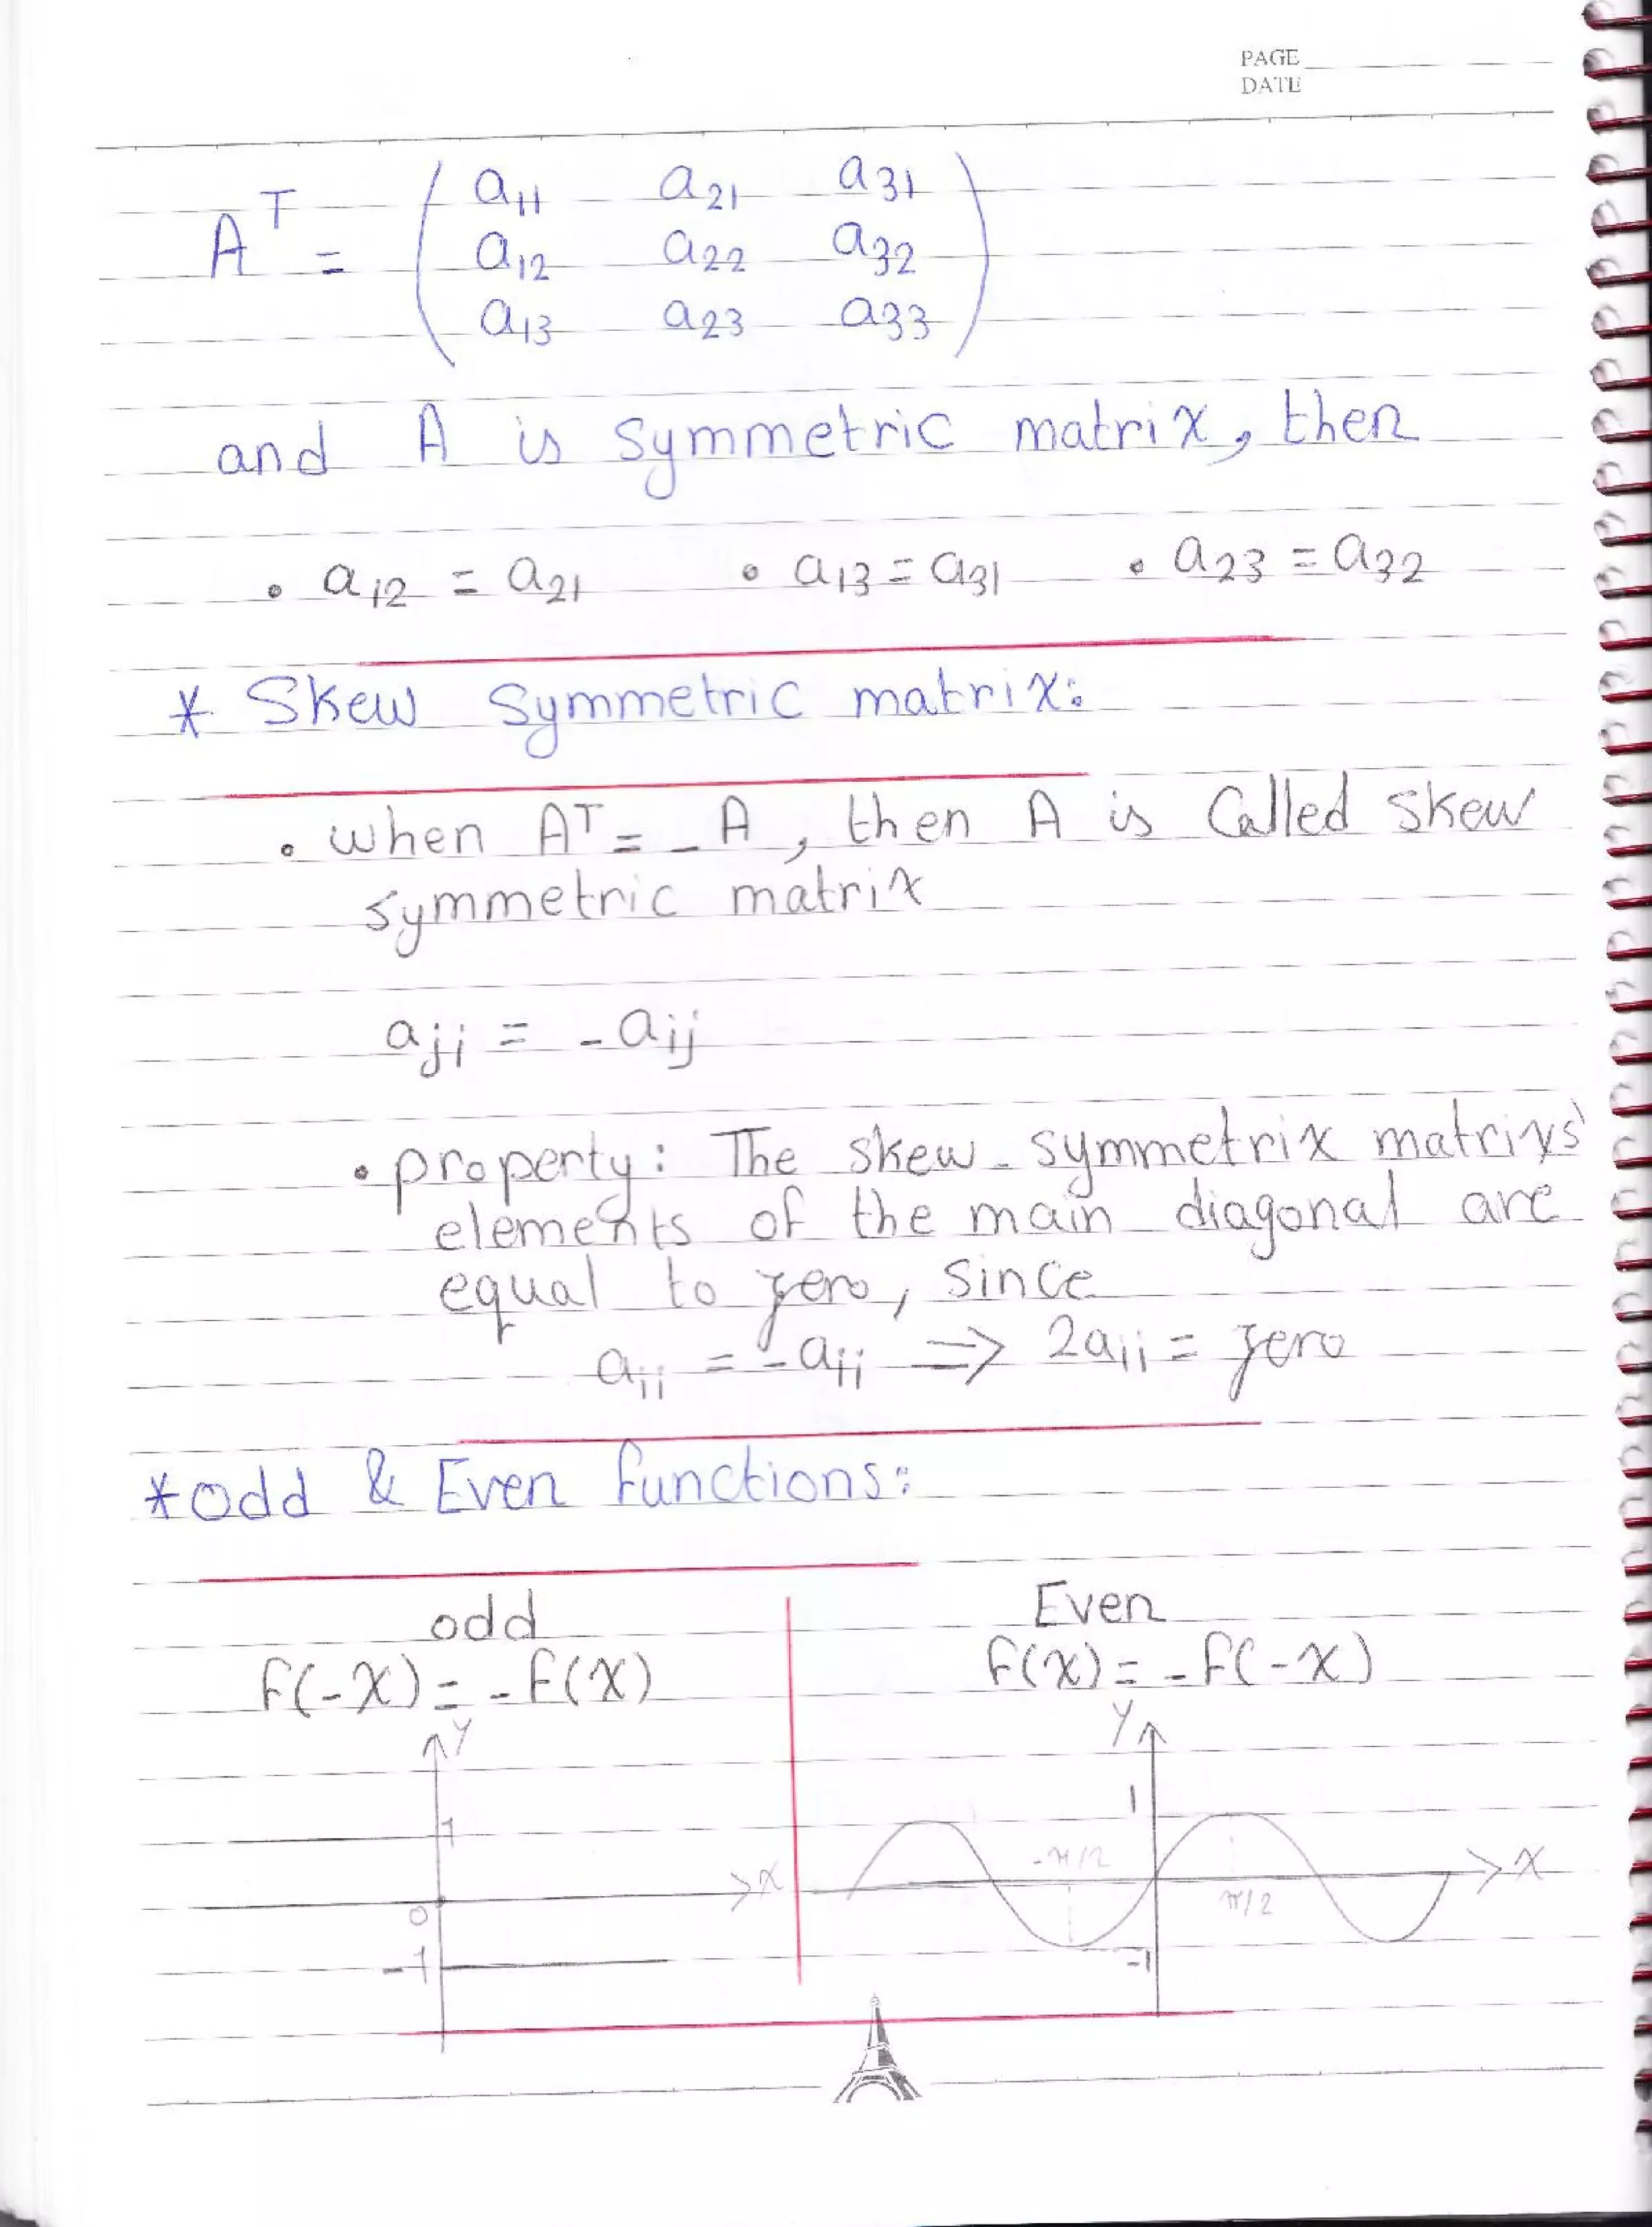 PAGE
DATE
A^T = ( a11 a21 a31
a12 a22 a32
a13 a23 a33 )
and A is symmetric matrix, then
• a12 = a21 • a13 = a31 • a23 = a32
* Skew Symmetric matrix:
• when A^T = -A, then A is Called skew
symmetric matrix
aji = -aij
• property: The skew-symmetrix matrixs'
elements of the main diagonal are
equal to zero, since
aii = -aii => 2aii = zero
* odd & Even functions:
odd Even
f(-x) = -f(x) f(x) = -f(-x)
Y Y
1 1
-π/2
x x
0 π/2
-1 -1